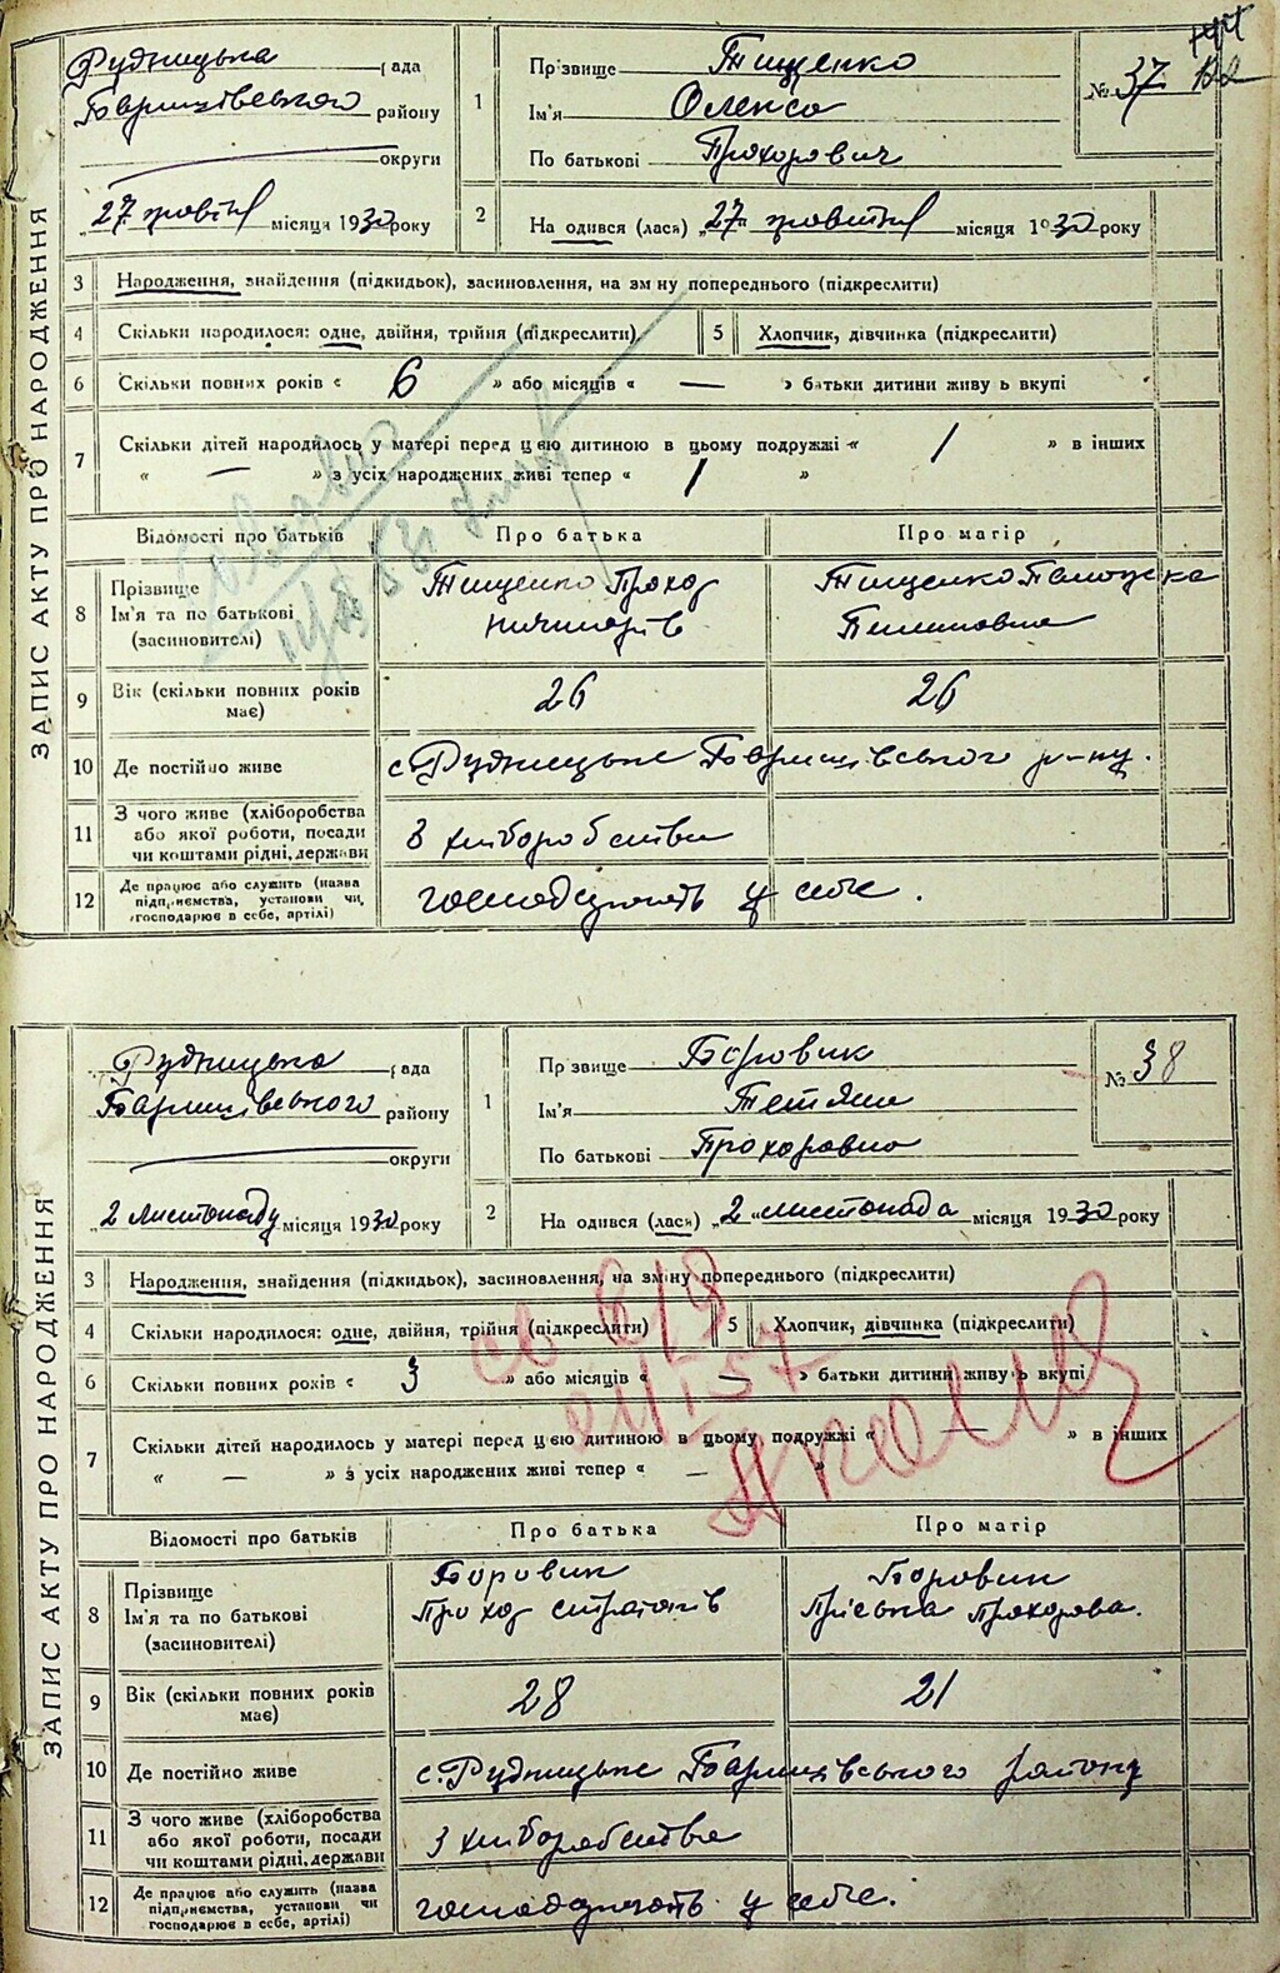 ЗАПИС АКТУ ПРО НАРОДЖЕННЯ
Рудницька рада
Баришівського району
округи
„27 жовтня місяця 1930 року
1
Прізвище Тищенко
Ім'я Олекса
По батькові Прохорович
№ 37
2
На одився (лася) „27" жовтня місяця 1930 року
3 Народження, знайдення (підкидьок), засиновлення, на зміну попереднього (підкреслити)
4 Скільки народилося: одне, двійня, трійня (підкреслити)
5 Хлопчик, дівчинка (підкреслити)
6 Скільки повних років « 6 » або місяців « — » батьки дитини живуть вкупі
7 Скільки дітей народилось у матері перед цією дитиною в цьому подружжі « 1 » в інших
« — » з усіх народжених живі тепер « 1 »
Відомості про батьків Про батька Про матір
8 Прізвище
Ім'я та по батькові
(засиновителі)
Тищенко Прохор
Тищенко
Пилиповна
9 Вік (скільки повних років
має)
26 26
10 Де постійно живе с. Рудницьке Баришівського р-ну.
11 З чого живе (хліборобства
або якої роботи, посади
чи коштами рідні, держави
З хліборобства
12 Де працює або служить (назва
підприємства, установи чи
господарює в себе, артілі)
господарюють у себе.
ЗАПИС АКТУ ПРО НАРОДЖЕННЯ
Рудницька рада
Баришівського району
округи
„2 листопаду місяця 1930 року
1
Прізвище Боровик
Ім'я Тетяна
По батькові Прохоровна
№ 38
2
На одився (лася) „2" листопада місяця 1930 року
3 Народження, знайдення (підкидьок), засиновлення, на зміну попереднього (підкреслити)
4 Скільки народилося: одне, двійня, трійня (підкреслити)
5 Хлопчик, дівчинка (підкреслити)
6 Скільки повних років « 3 » або місяців « — » батьки дитини живуть вкупі
7 Скільки дітей народилось у матері перед цією дитиною в цьому подружжі « — » в інших
« — » з усіх народжених живі тепер « — »
Відомості про батьків Про батька Про матір
8 Прізвище
Ім'я та по батькові
(засиновителі)
Боровик
Прохор
Боровик
Пріська Прохорова.
9 Вік (скільки повних років
має)
28 21
10 Де постійно живе с. Рудницьке Баришівського району
11 З чого живе (хліборобства
або якої роботи, посади
чи коштами рідні, держави
З хліборобства
12 Де працює або служить (назва
підприємства, установи чи
господарює в себе, артілі)
господарюють у себе.